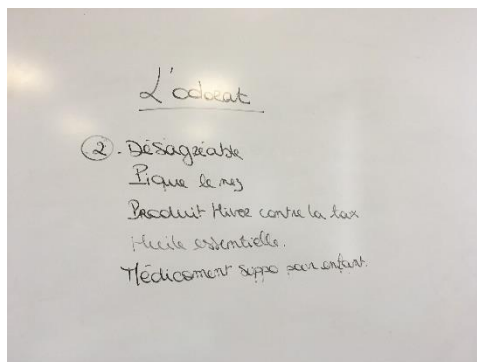 L'odorat
2. Désagréable
Pique le nez
Produit Hiver contre la tox
Huile essentielle.
Médicament suppo pour enfant.